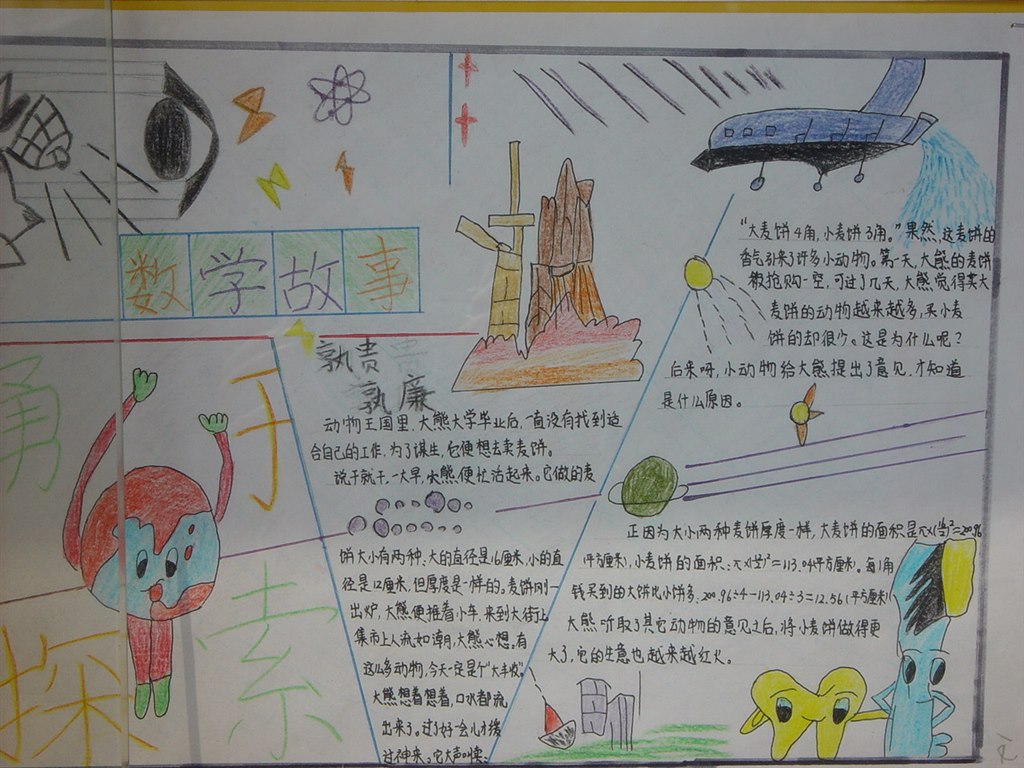 数学故事
孰贵
孰廉
动物王国里,大熊大学毕业后,一直没有找到适
合自己的工作,为了谋生,它便想去卖麦饼。
说干就干,一大早,大熊便忙活起来。它做的麦
饼大小有两种:大的直径是16厘米,小的直
径是12厘米,但厚度是一样的。麦饼刚一
出炉,大熊便推着小车,来到大街上,
集市上人流如潮,大熊心想:有
这么多动物,今天一定是个“大丰收”。
大熊想着想着,口水都流
出来了。过了好一会儿才缓
过神来。它大声叫卖:
“大麦饼4角,小麦饼3角。”果然,这麦饼的
香气引来了许多小动物。第一天,大熊的麦饼
被抢购一空,可过了几天,大熊觉得买大
麦饼的动物越来越多,买小麦
饼的却很少。这是为什么呢?
后来呀,小动物给大熊提出了意见,才知道
是什么原因。
正因为大小两种麦饼厚度一样,大麦饼的面积是
(平方厘米),小麦饼的面积:=113.04平方厘米。每1角
钱买到的大饼比小饼多:200.96÷4-113.04÷3=12.56(平方厘米)
大熊听取了其它动物的意见之后,将小麦饼做得更
大了,它的生意也越来越红火。
勇
于
探
索